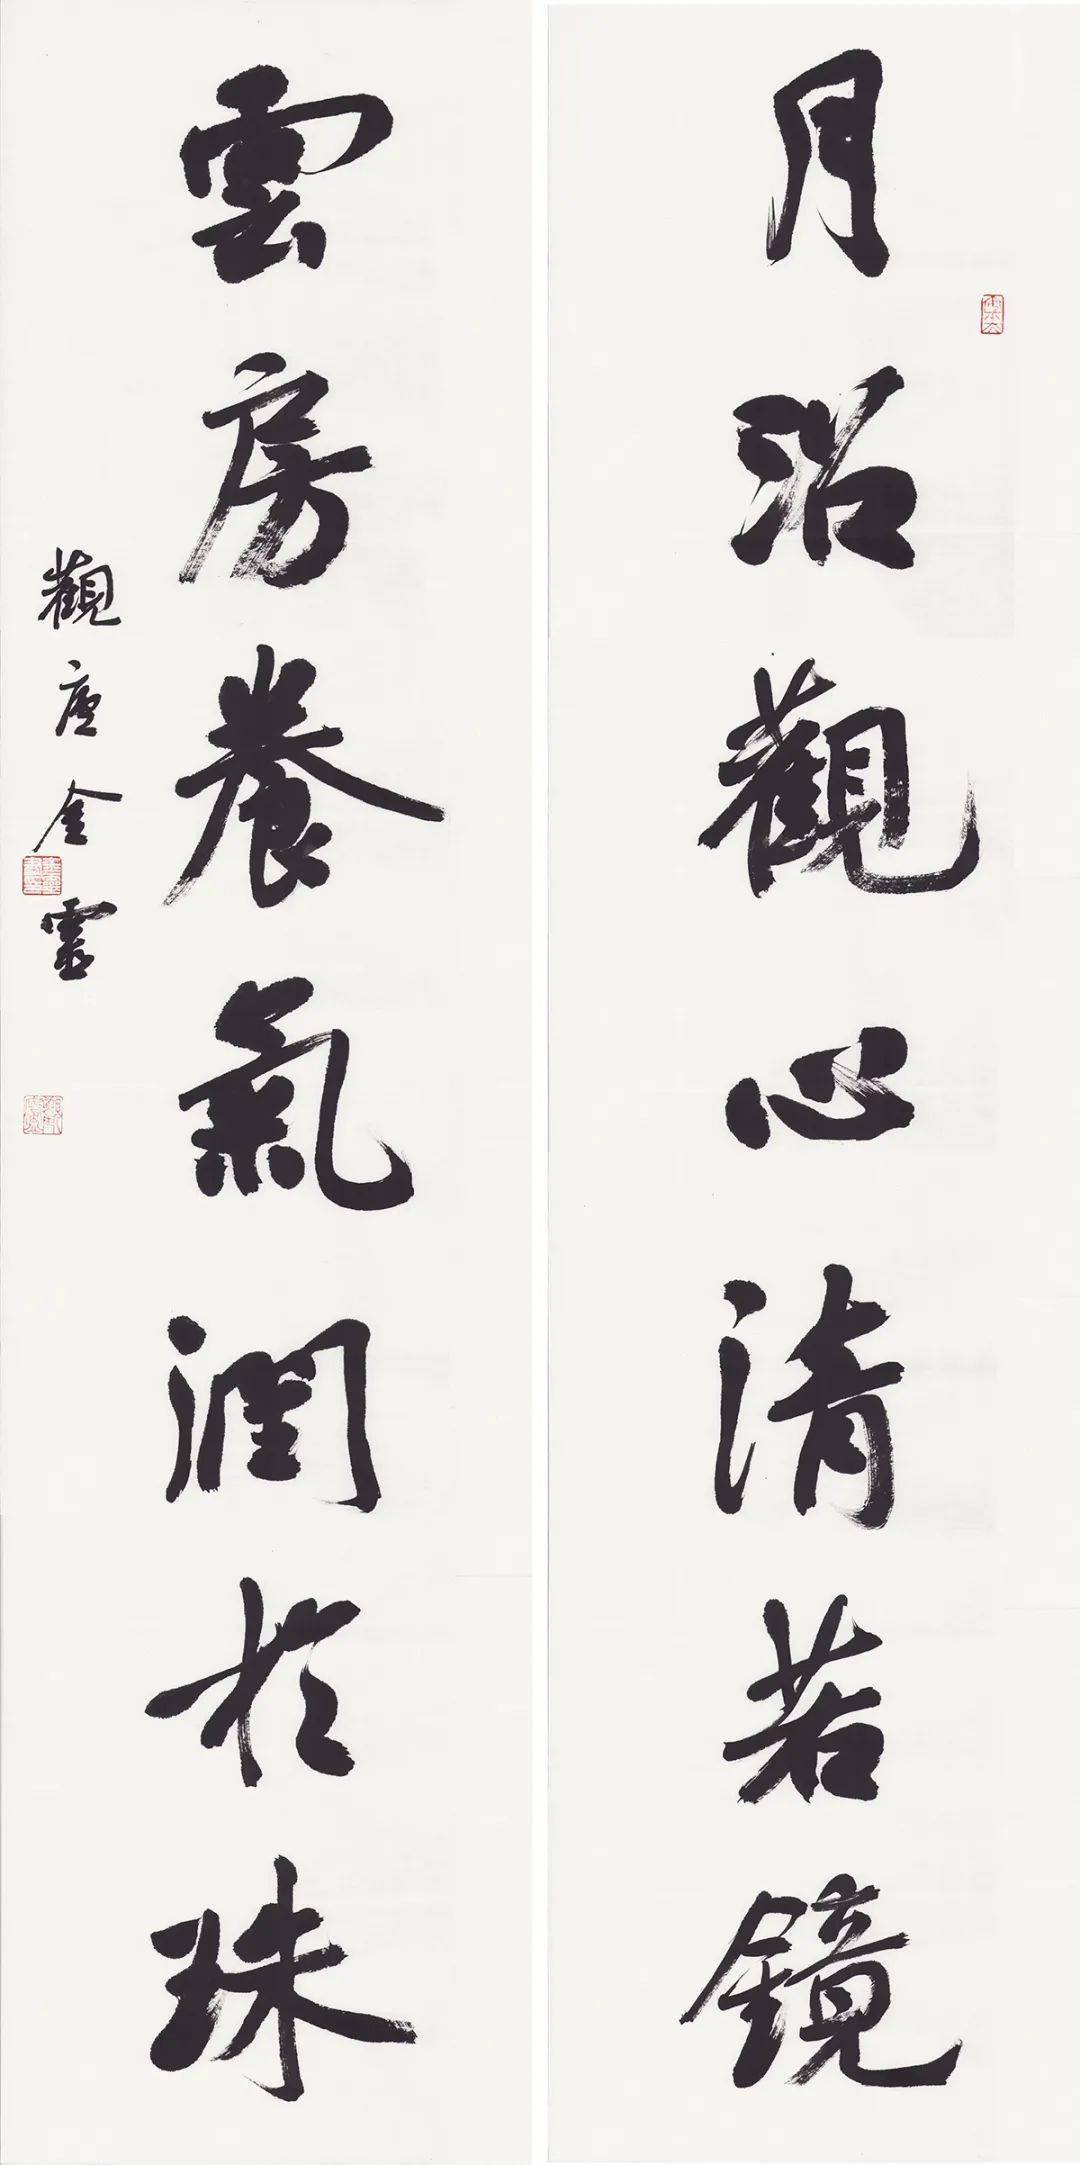 月沼觀心清若鏡
雲房養氣潤於珠
觀廬金